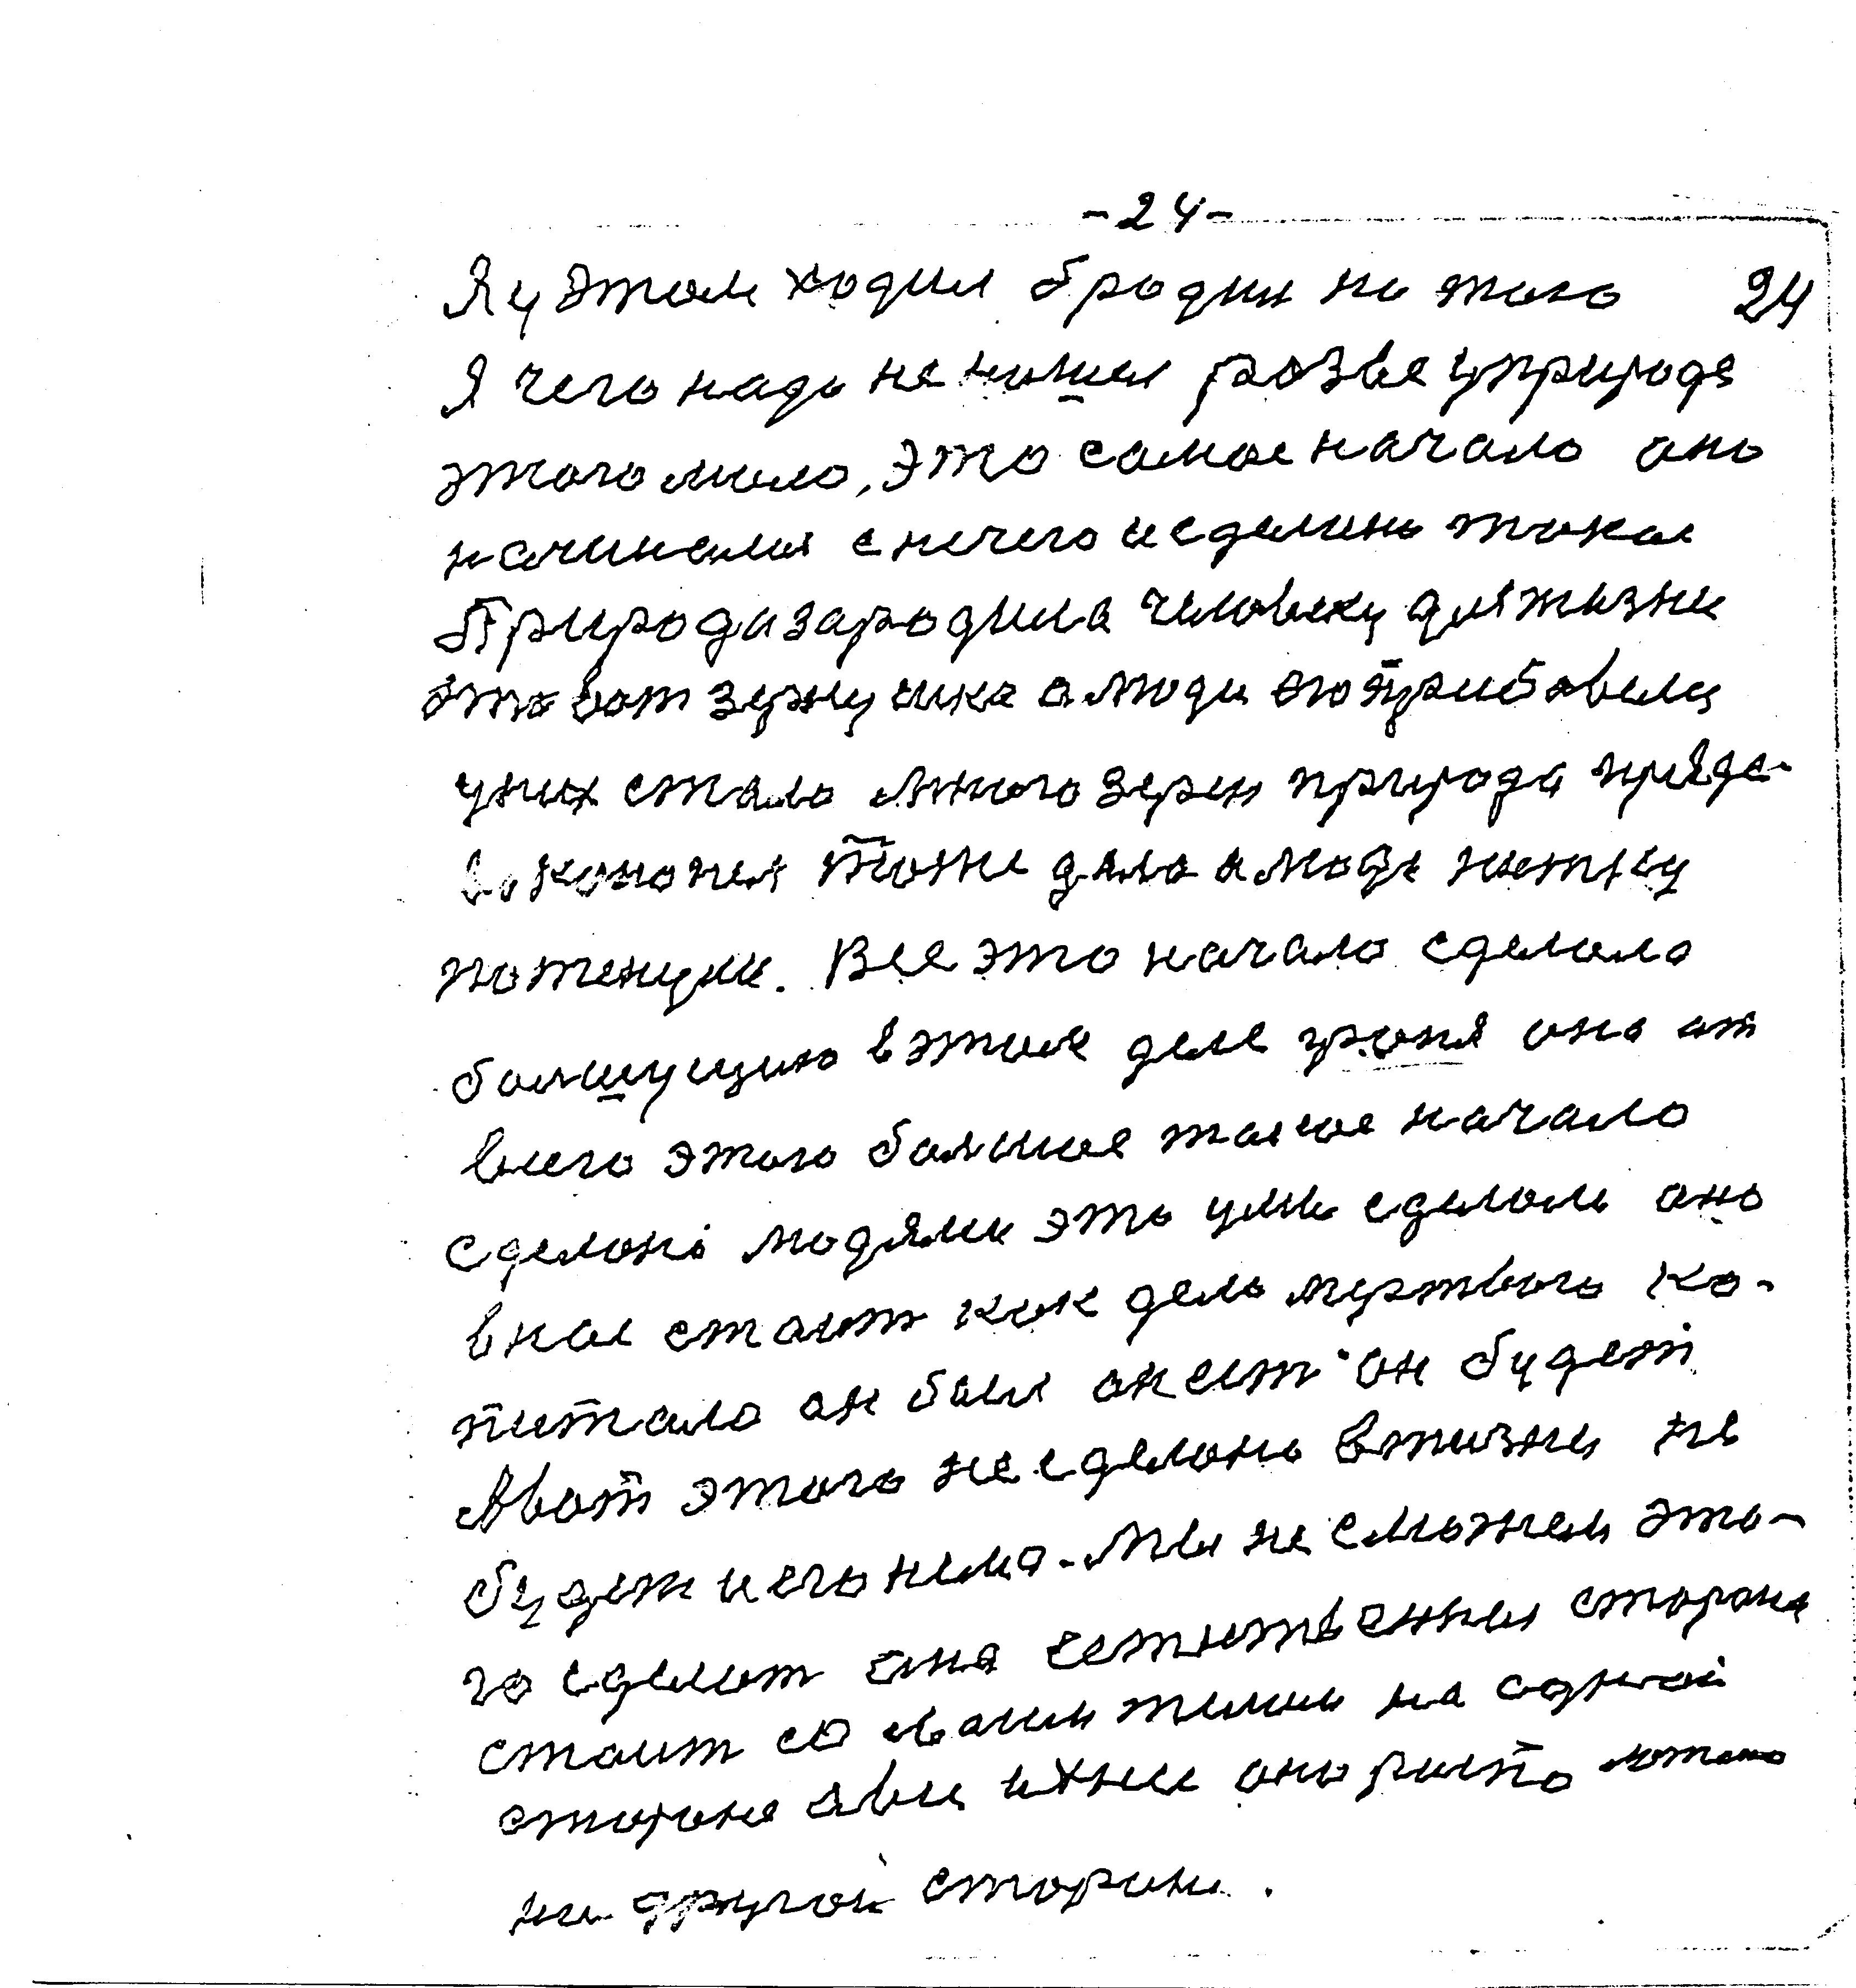 -24-
Я у этом ходил бродил но того 24
Я чего надо не нашел розве уприроде
этого мало, это самое начало ано
начиналя с нечего и сделано такое
Природа зародила человеку для жизни
это вот зернушко а люди его прибавили
уних стало много зерен природа
тоже дала а люди
потенции. Все это начало сделало
большущию вэтом деле ано от
всего этого большое такое начало
сделоно людями это уже сделоли ано
внас стоит как дело мертвого ка-
питало он был он ест он будет
Авот этого не сделоно вжизни не
будет и его нема. Мы не сможем это-
го сделат она естественная сторона
стоит со своим телом на одной
стороне оно
на другой стороне.